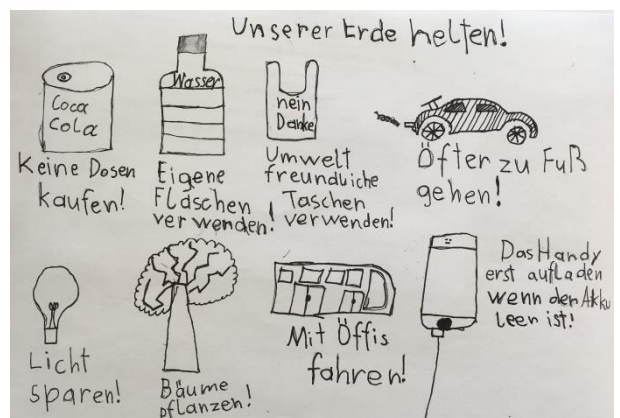 Unserer Erde helfen!
Coca
Cola
Keine Dosen
kaufen!
Wasser
Eigene
Flaschen
verwenden!
nein
Danke
Umwelt
freundliche
Taschen
verwenden!
Öfter zu Fuß
gehen!
Licht
sparen!
Bäume
pflanzen!
Mit Öffis
fahren!
Das Handy
erst aufladen
wenn der Akku
leer ist!